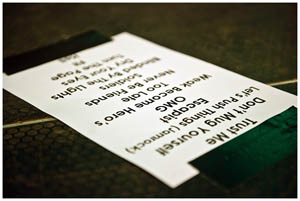 Trust Me
Don't Mug Yourself
Let's Push Things (Jamrock)
Escapist
OMG
Weak Become Hero's
Too Late
Never Be Friends
Soldiers
Blinded By the Lights
Dry Your Eyes
Turn The Page